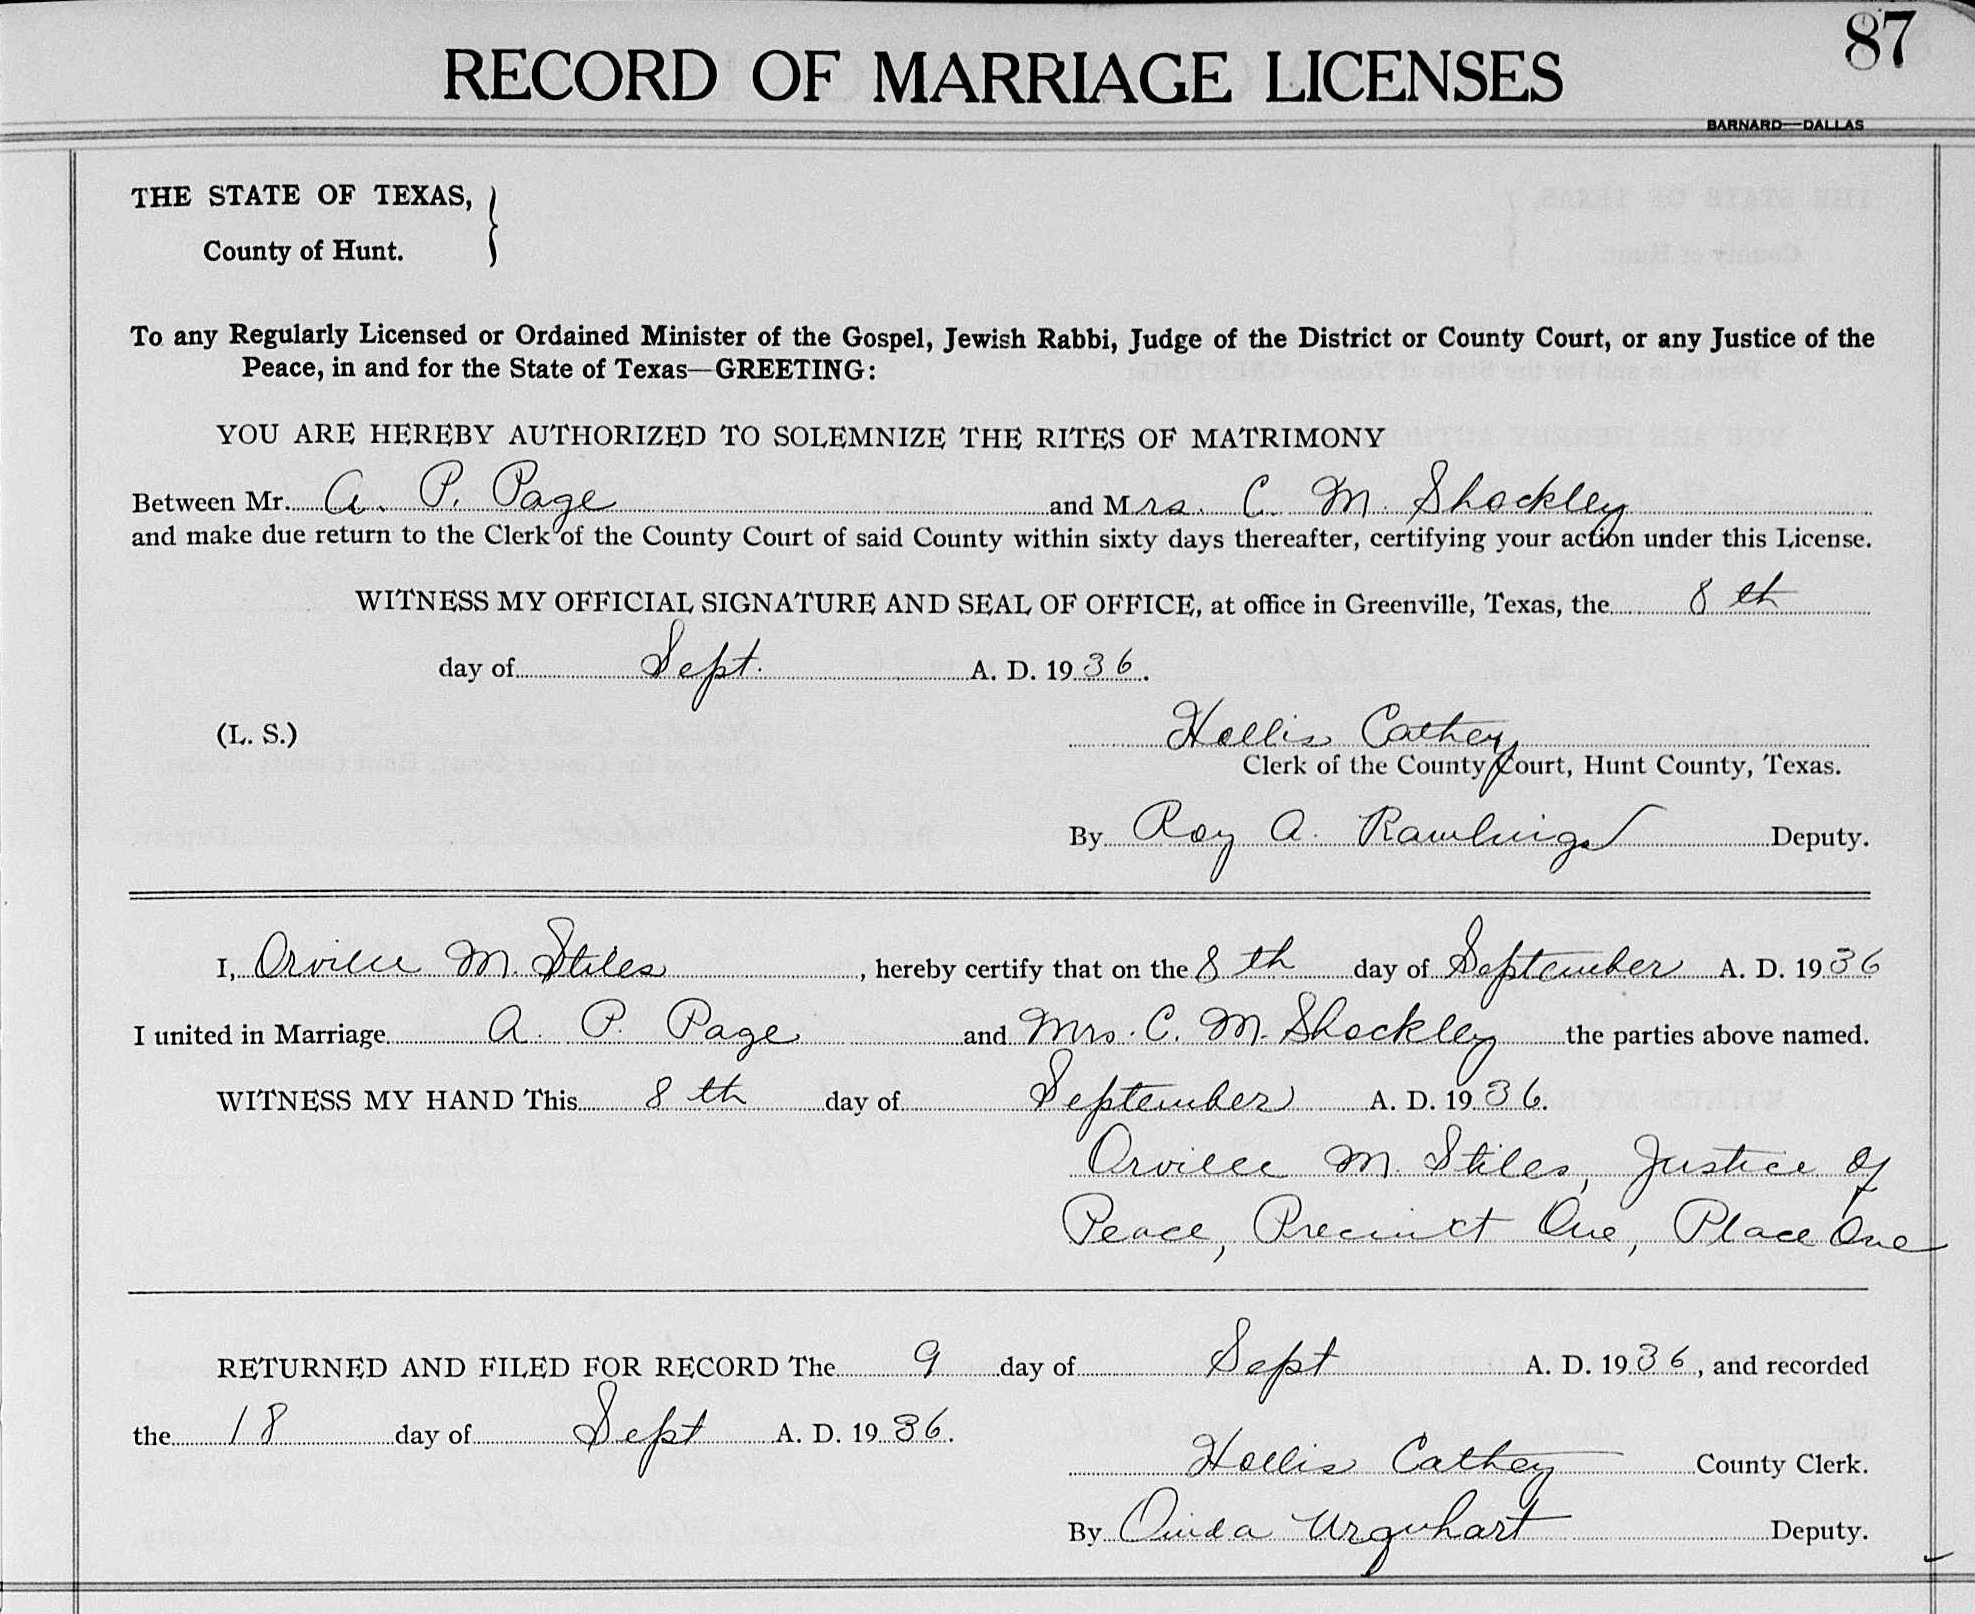 87
RECORD OF MARRIAGE LICENSES
BARNARD—DALLAS
THE STATE OF TEXAS,
County of Hunt.
To any Regularly Licensed or Ordained Minister of the Gospel, Jewish Rabbi, Judge of the District or County Court, or any Justice of the
Peace, in and for the State of Texas—GREETING:
YOU ARE HEREBY AUTHORIZED TO SOLEMNIZE THE RITES OF MATRIMONY
Between Mr. A. P. Page and Mrs. C. M. Shockley
and make due return to the Clerk of the County Court of said County within sixty days thereafter, certifying your action under this License.
WITNESS MY OFFICIAL SIGNATURE AND SEAL OF OFFICE, at office in Greenville, Texas, the 8th
day of Sept. A. D. 1936.
(L. S.) Hollis Cathey
Clerk of the County Court, Hunt County, Texas.
By Roy A. Rawlings Deputy.
I, Orville M. Stiles, hereby certify that on the 8th day of September A. D. 1936
I united in Marriage A. P. Page and Mrs. C. M. Shockley the parties above named.
WITNESS MY HAND This 8th day of September A. D. 1936.
Orville M. Stiles, Justice of
Peace, Precinct One, Place One
RETURNED AND FILED FOR RECORD The 9 day of Sept A. D. 1936, and recorded
the 18 day of Sept A. D. 1936.
Hollis Cathey County Clerk.
By Ouida Urquhart Deputy.